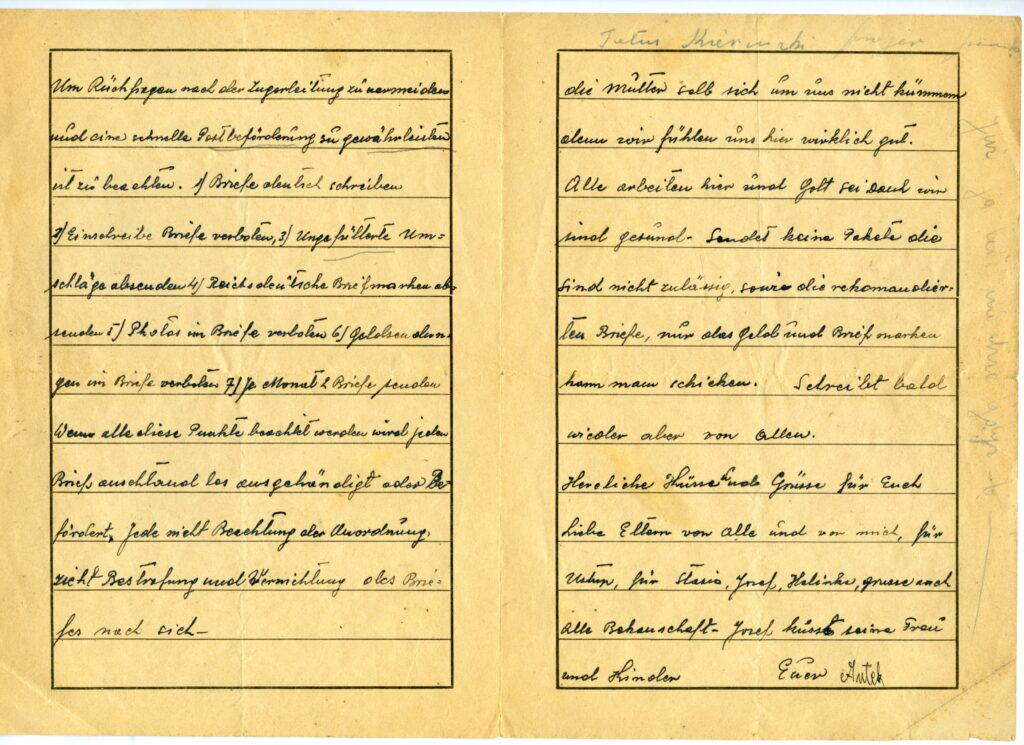 Um Rückfragen nach der Lagerleitung zu vermeiden
und eine schnelle Postbeförderung zu gewährleisten
ist zü beachten. 1) Briefe deutsch schreiben
2) Einschreibe Briefe verboten, 3) Ungefütterte Um=
schläge absenden 4) Reichsdeütsche Briefmarken ab-
senden 5) Photos im Briefe verboten 6) Geldsendun-
gen im Briefe verboten 7) Je Monat 2 Briefe senden
Wenn alle diese Punkte beachtet werden wird jeder
Brief anschtand los ausgehändigt oder Be-
fördert. Jede nicht Beachtung der Anordnung,
zieht Bestrafung und Vernichtung des Brie-
fes nach sich-
Tatus
die Mütter soll sich um uns nicht kümmern
denn wir fühlen uns hier wirklich gut.
Alle arbeiten hier und Gott sei Dank wir
sind gesünd- Sendet keine Pakete die
sind nicht zulässig, sowie die rekomandier-
ten Briefe, nur das Geld und Briefmarken
kann man schicken. Schreibt bald
wieder aber von Allen.
Herzliche Küsse und Grüsse für Euch
Liebe Eltern von Alle und von mich, für
für Stasia, Josef, Halinka, grusse auch
Alle Bekanschaft- Josef küsst seine Frau
und Kinder Euer Antek